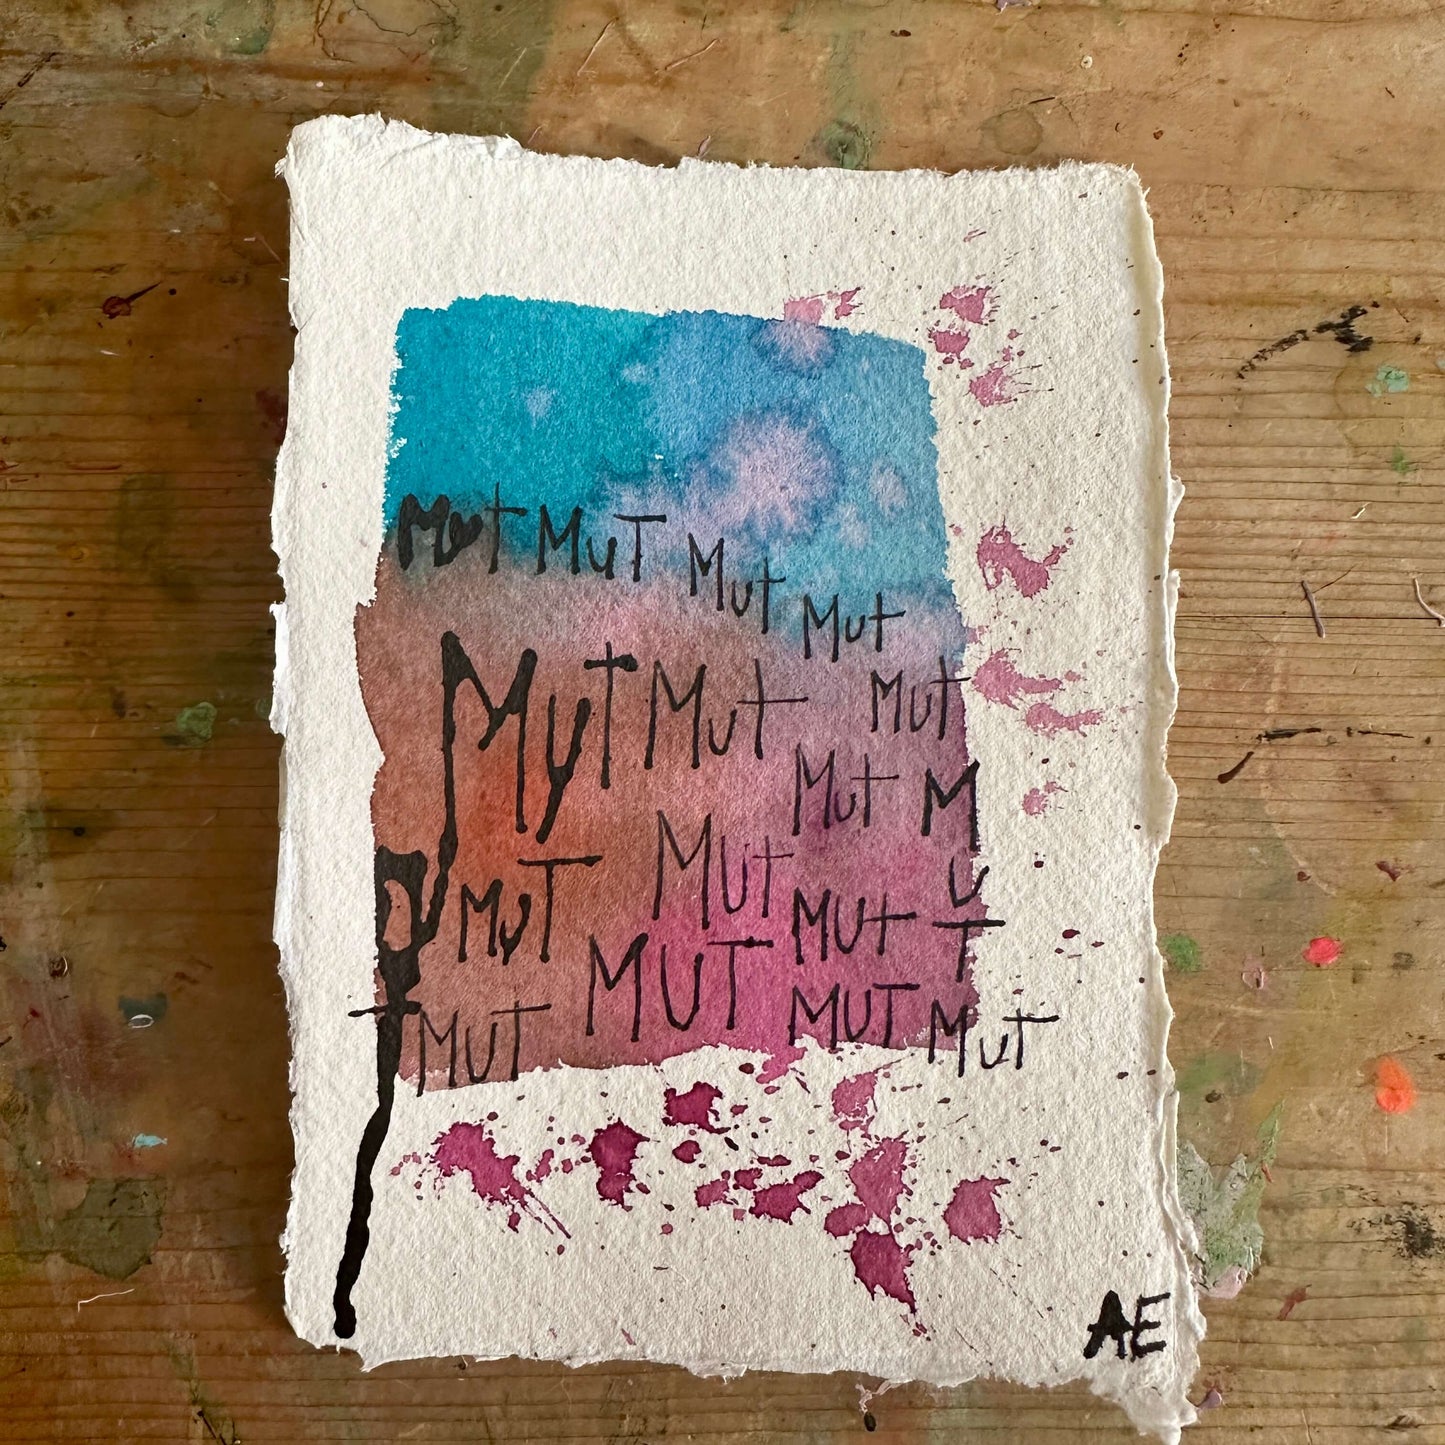 Mut MuT Mut Mut
Mut Mut Mut
Mut M
u
T
MuT Mut Mut
MUT MUT MUT Mut
AE